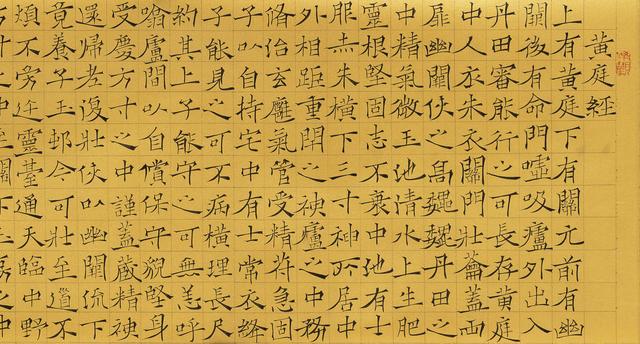 黃庭經
上有黃庭下有關元前有幽
闕後有命門噓吸廬外出入
丹田審能行之可長存黃庭
中人衣朱衣關門壯蘥蓋兩
扉幽關俠之高巍巍丹田之
中精氣微玉池清水上生肥
靈根堅固志不衰中池有士
服赤朱橫下三寸神所居中
外相距重閉之神廬之中務
脩治玄廱氣管受精符急固
子以自持宅中有士常衣絳
子能見之可不病橫理長尺
約其上子能守之可無恙呼
噏廬間以自償保守貌堅身
受慶方寸之中謹蓋藏精神
還歸老復壯俠以幽闕流下
竟養子玉邨令可壯至道不
煩不旁迕靈臺通天臨中野